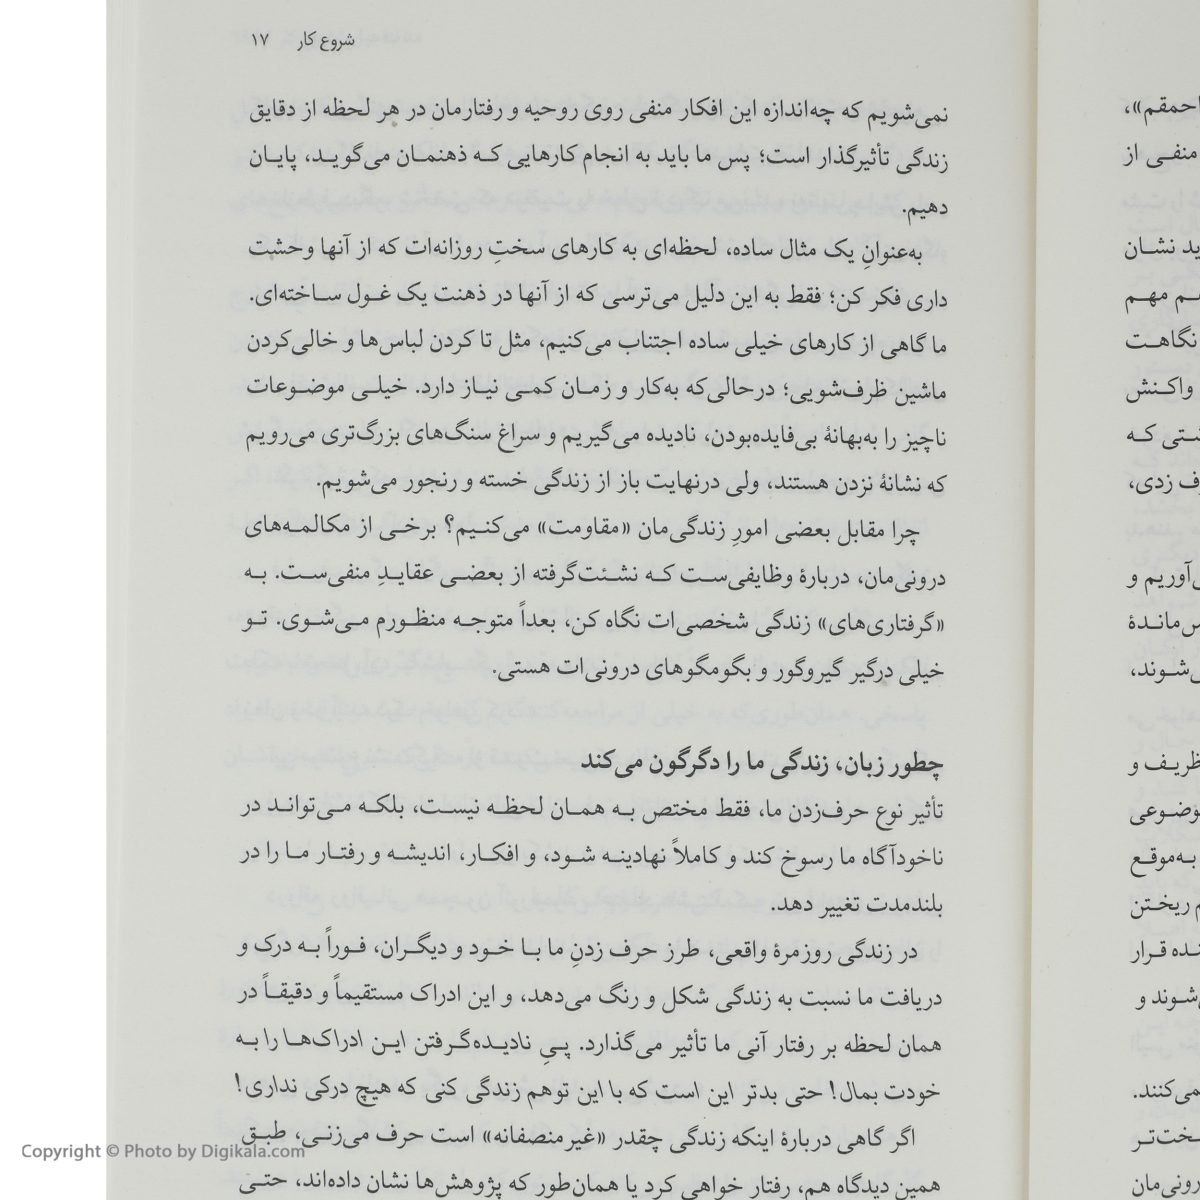 شروع کار ۱۷
نمی‌شویم که چه‌اندازه این افکار منفی روی روحیه و رفتارمان در هر لحظه از دقایق
زندگی تأثیرگذار است؛ پس ما باید به انجام کارهایی که ذهنمان می‌گوید، پایان
دهیم.
به‌عنوانِ یک مثال ساده، لحظه‌ای به کارهای سختِ روزانه‌ات که از آنها وحشت
داری فکر کن؛ فقط به این دلیل می‌ترسی که از آنها در ذهنت یک غول ساخته‌ای.
ما گاهی از کارهای خیلی ساده اجتناب می‌کنیم، مثل تا کردن لباس‌ها و خالی‌کردن
ماشین ظرف‌شویی؛ درحالی‌که به‌کار و زمان کمی نیاز دارد. خیلی موضوعات
ناچیز را به‌بهانهٔ بی‌فایده‌بودن، نادیده می‌گیریم و سراغ سنگ‌های بزرگ‌تری می‌رویم
که نشانهٔ نزدن هستند، ولی درنهایت باز از زندگی خسته و رنجور می‌شویم.
چرا مقابل بعضی امورِ زندگی‌مان «مقاومت» می‌کنیم؟ برخی از مکالمه‌های
درونی‌مان، دربارهٔ وظایفی‌ست که نشئت‌گرفته از بعضی عقایدِ منفی‌ست. به
«گرفتاری‌های» زندگی شخصی‌ات نگاه کن، بعداً متوجه منظورم می‌شوی. تو
خیلی درگیر گیروگور و بگومگوهای درونی‌ات هستی.
چطور زبان، زندگی ما را دگرگون می‌کند
تأثیر نوع حرف‌زدن ما، فقط مختص به همان لحظه نیست، بلکه می‌تواند در
ناخودآگاه ما رسوخ کند و کاملاً نهادینه شود، و افکار، اندیشه و رفتار ما را در
بلندمدت تغییر دهد.
در زندگی روزمرهٔ واقعی، طرز حرف زدنِ ما با خود و دیگران، فوراً به درک و
دریافت ما نسبت به زندگی شکل و رنگ می‌دهد، و این ادراک مستقیماً و دقیقاً در
همان لحظه بر رفتار آنی ما تأثیر می‌گذارد. پیِ نادیده‌گرفتن این ادراک‌ها را به
خودت بمال! حتی بدتر این است که با این توهم زندگی کنی که هیچ درکی نداری!
اگر گاهی دربارهٔ اینکه زندگی چقدر «غیرمنصفانه» است حرف می‌زنی، طبق
همین دیدگاه هم، رفتار خواهی کرد یا همان‌طور که پژوهش‌ها نشان داده‌اند، حتی
احمقم»،
منفی از
ید نشان
هم مهم
نگاهت
واکنش
که
زدی،
و
شوند،
ظریف و
به‌موقع
ریختن
قرار
و
Copyright © Photo by Digikala.com